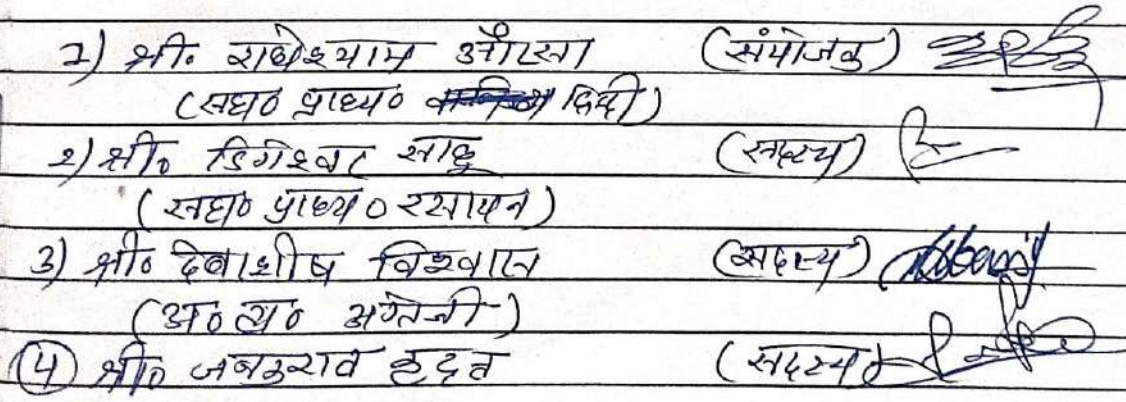 1) श्री. राधेश्याम औरसा (संयोजक)
(सहा० प्राध्या० हिंदी)
2) श्री० डिगेश्वर साहू (सदस्य)
(सहा० प्राध्य० रसायन)
3) श्री० देवाशीष विश्वास (सदस्य)
(अ० व्या० अंग्रेजी)
(4) श्री० जबकुराव हदत (सदस्य)